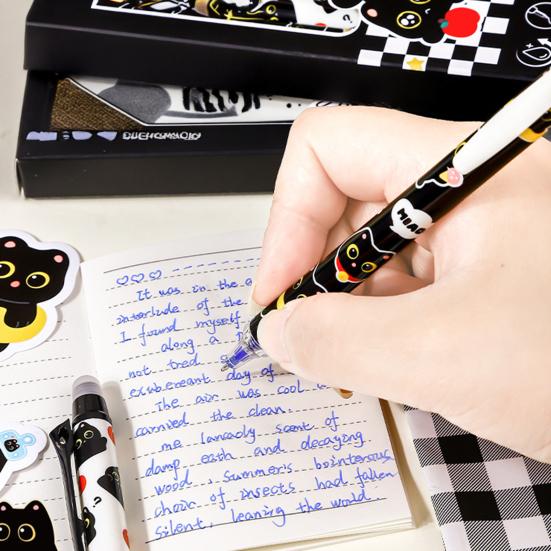 It was in the
interlude of the
I found myself
along a
not tred
exubereant day of
The air was cool
carried the clean.
me lancaoly scent of
damp eath and decaying
wood, summer's bointerous
choir of insects had fallen
silent, leaning the world.
MIAO